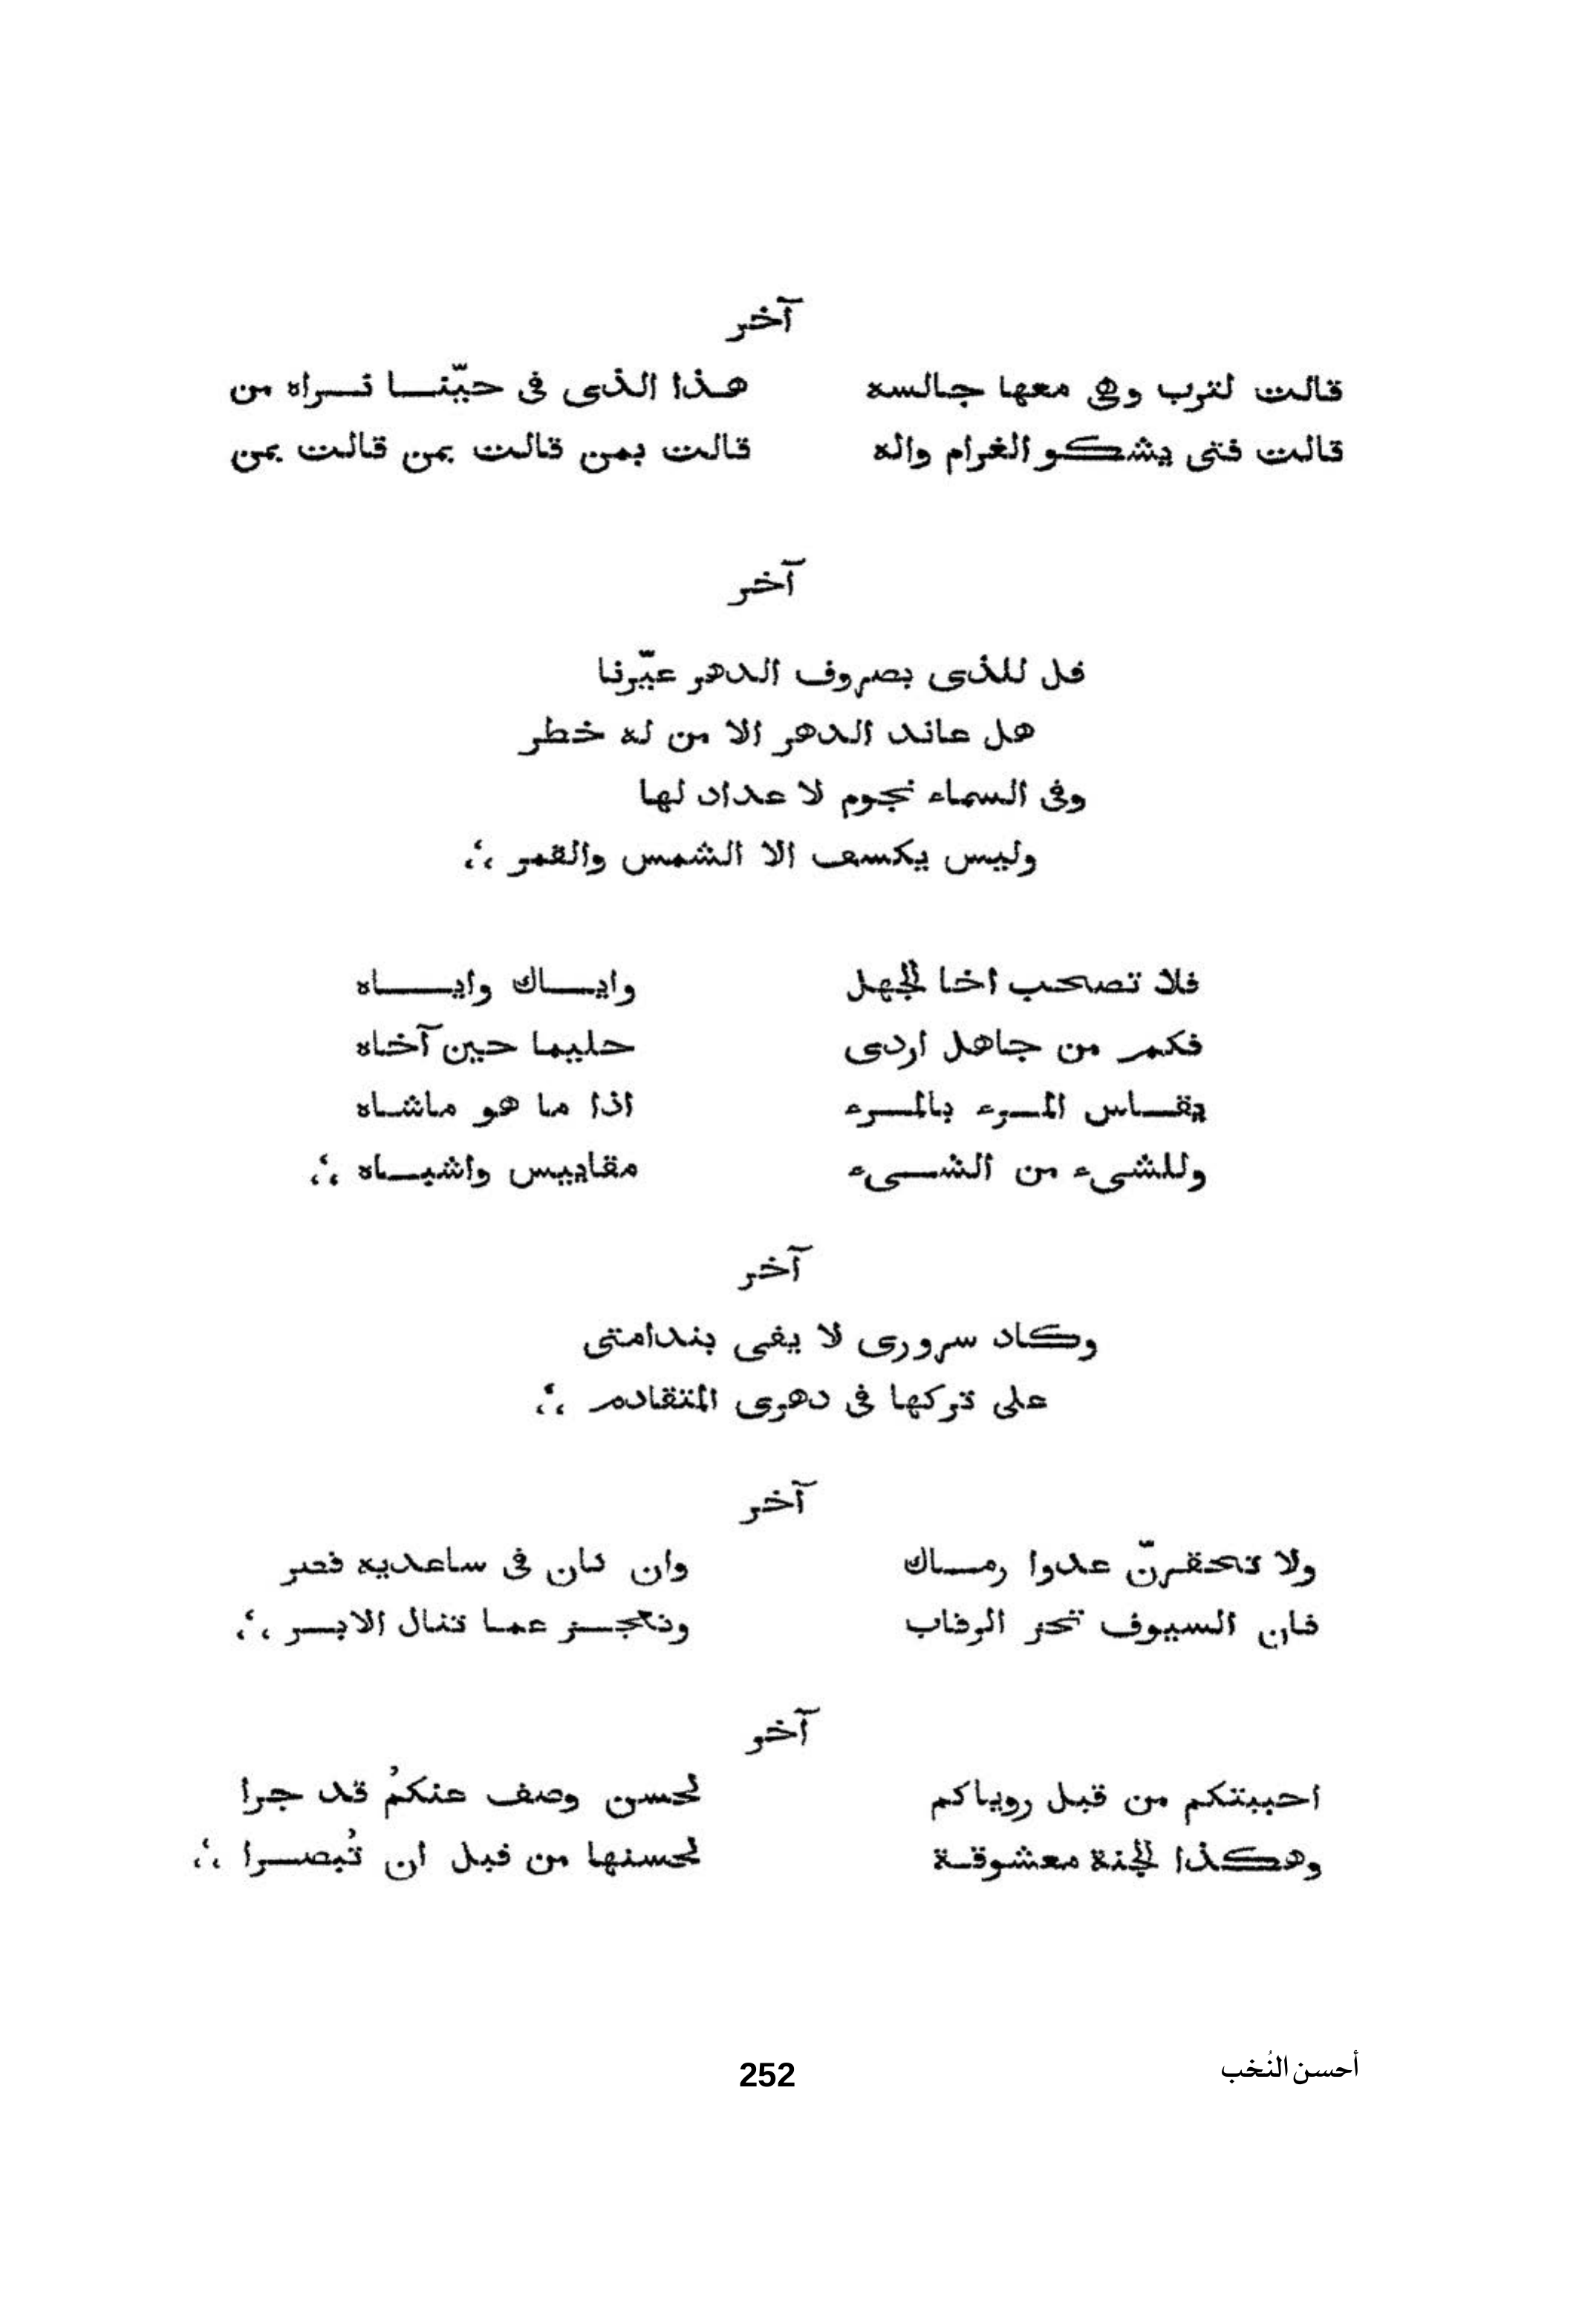 آخر
قالت لترب وهى معها جالسه هـذا الذى فى حيّنـــا نـــراه من
قالت فتى يشكـو الغرام واله قالت بمن قالت بمن قالت بمن
آخر
قل للذى بصروف الدهر عيّرنا
هل عاند الدهر الا من له خطر
وفى السماء نجوم لا عداد لها
وليس يكسف الا الشمس والقمر ،؛
فلا تصحب اخا الجهل واياك وايـــاه
فكم من جاهل اردى حليما حين آخاه
يقـــاس المـرء بالمـرء اذا ما هو ماشاه
وللشىء من الشـــىء مقاييس واشبـــاه ،؛
آخر
وكاد سرورى لا يفى بندامتى
على تركها فى دهرى المتقادم ،؛
آخر
ولا تحقـرنّ عدوا رمـــاك وان كان فى ساعديه قصر
فان السيوف تحز الرقاب وتعجـــز عمـا تنال الابـــر ،؛
آخر
احببتكم من قبل روياكم لحسن وصف عنكمُ قد جرا
وهكـذا الجنة معشوقـة لحسنها من قبل ان تُبصـــرا ،؛
أحسن النُخب
252